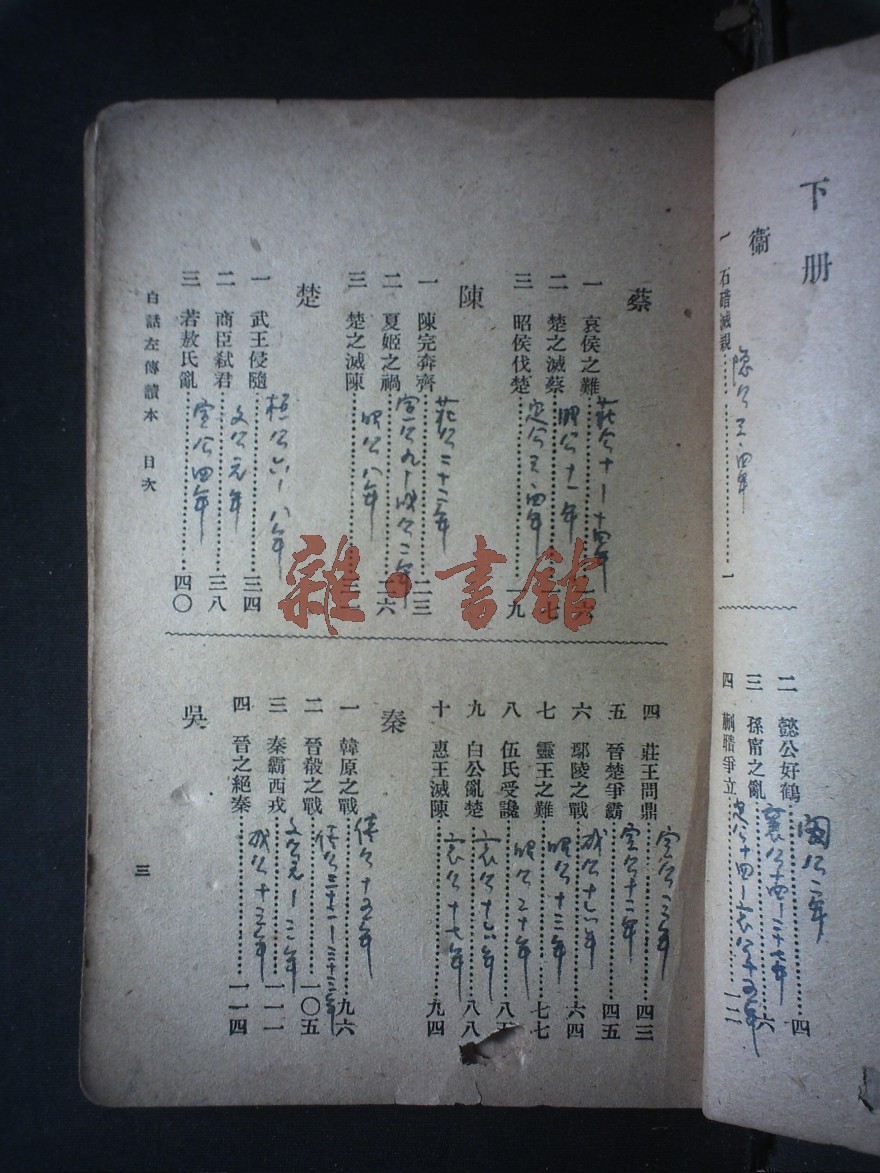 下册
衞
一 石碏滅親 隱公三、四年 一
二 懿公好鶴 閔公二年 四
三 孫甯之亂 襄公十四—二十七年 六
四 蒯聵爭立 定公十四—哀公十五年 一二
蔡
一 哀侯之難 莊公十—十四年
二 楚之滅蔡 昭公十一年
三 昭侯伐楚 定公三、四年 一九
陳
一 陳完奔齊 莊公二十二年 二三
二 夏姬之禍 宣公九—成公二年 二六
三 楚之滅陳 昭公八年
楚
一 武王侵隨 桓公六—八年 三四
二 商臣弒君 文公元年 三八
三 若敖氏亂 宣公四年 四〇
四 莊王問鼎 宣公三年 四三
五 晉楚爭霸 宣公十二年 四五
六 鄢陵之戰 成公十六年 六四
七 靈王之難 昭公十三年 七七
八 伍氏受讒 昭公二十年
九 白公亂楚 哀公十六年 八八
十 惠王滅陳 哀公十七年 九四
秦
一 韓原之戰 僖公十五年 九六
二 晉殽之戰 僖公三十二—三十三年 一〇五
三 秦霸西戎 文公元—三年 一一一
四 晉之絕秦 成公十三年 一一四
吳
白話左傳讀本 目次
三
雜·書館